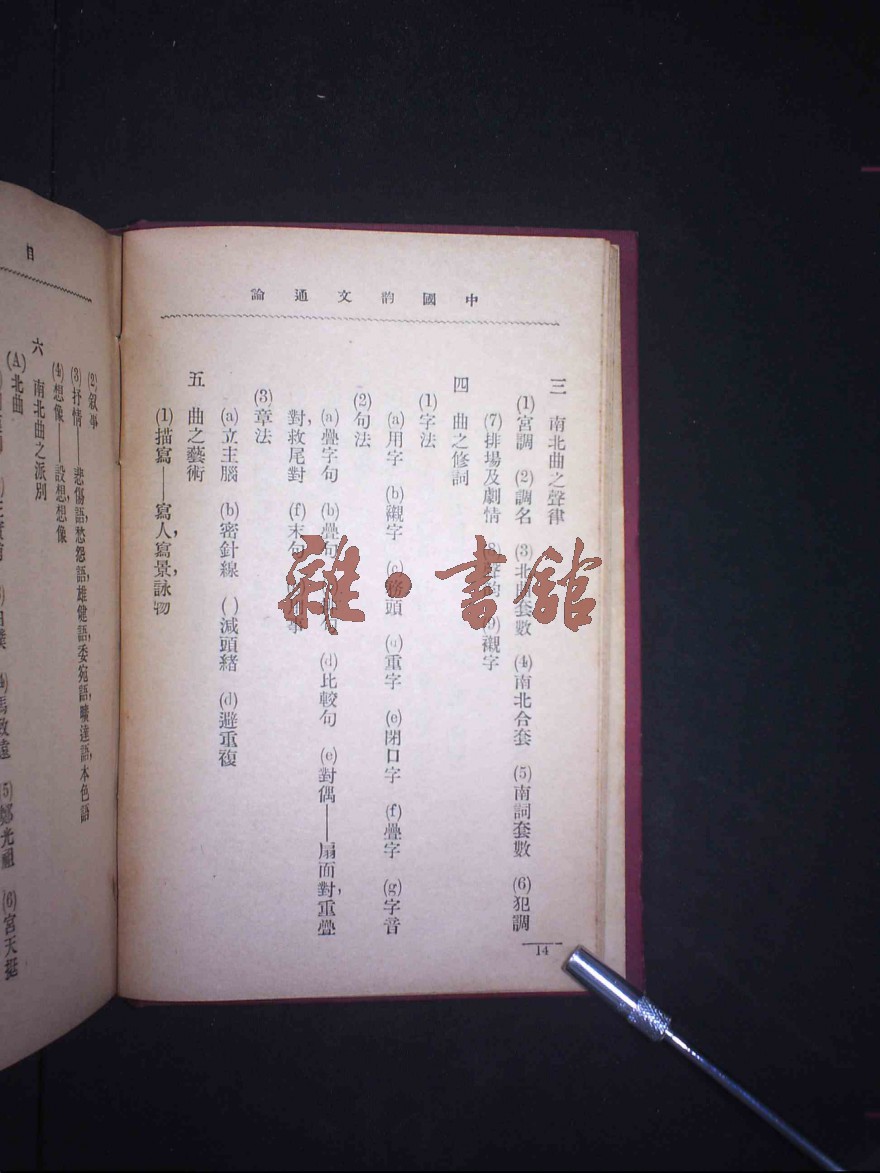 中國韵文通論
三 南北曲之聲律
(1)宮調 (2)調名 (3)北曲套數 (4)南北合套 (5)南詞套數 (6)犯調
(7)排場及劇情 (8) (9)襯字
四 曲之修詞
(1)字法
(a)用字 (b)襯字 (c)務頭 (d)重字 (e)閉口字 (f)疊字 (g)字音
(2)句法
(a)疊字句 (b)疊句 (d)比較句 (e)對偶——扇面對,重疊
對,救尾對 (f)末句 事
(3)章法
(a)立主腦 (b)密針線 ( )減頭緒 (d)避重複
五 曲之藝術
(1)描寫——寫人,寫景,詠物
14
雜·書館
目
(2)叙事
(3)抒情——悲傷語,愁怨語,雄健語,委宛語,曠達語,本色語
(4)想像——設想,想像
六 南北曲之派別
(A)北曲
(4)馬致遠 (5)鄭光祖 (6)宮天挺